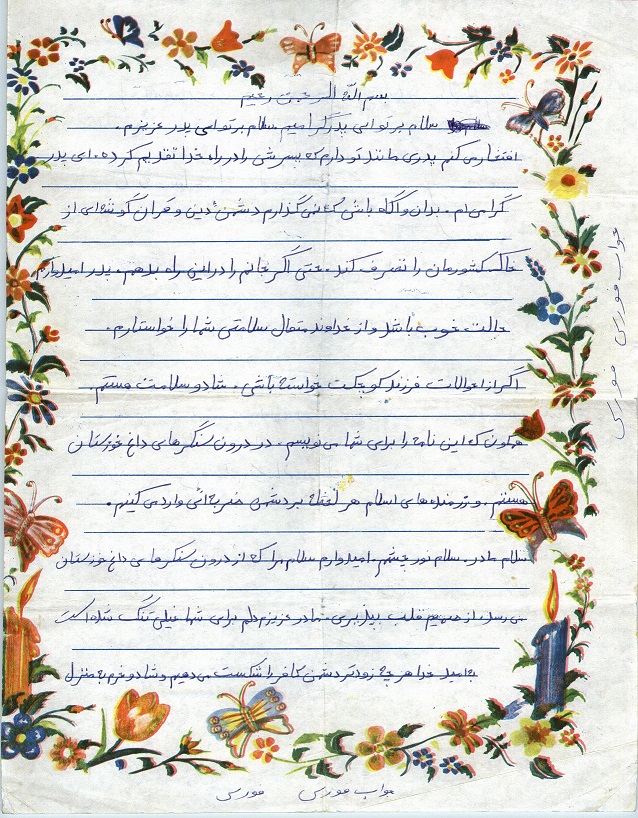 بسم الله الرحمن رحیم
سلام بر تو ای پدر گرامیم سلام بر تو ای پدر عزیزم.
افتخار می کنم پدری مانند تو دارم که پسرش را در راه خدا تقدیم کرده. ای پدر
گرامی ام. بدان و آگاه باش که نمی گذارم دشمن دین و قرآن گوشه ای از
خاک کشورمان را تصرف کند. حتی اگر جانم را در این راه بدهم. پدر امیدوارم
حالت خوب باشد و از خداوند متعال سلامتی شما را خواستارم.
اگر از احوالات فرزند کوچکت خواسته باشی. شاد و سلامت هستم.
هم کنون که این نامه را برای شما می نویسم. در درون سنگرهای داغ خوزستان
هستم. و رزمنده های اسلام هر لحظه بر دشمن ضربه ائی وارد می کینم.
سلام مادر. سلام نور چشم. امیدوارم سلام مرا که از درون سنگرهای داغ خوزستان
می رسد. از صمیم قلب بپذیری. مادر عزیزم دلم برای شما خیلی تنگ شده است
به امید خدا هر چه زودتر دشمن کافر را شکست می دهیم و شاد و خرم به منزل
جواب فوری فوری
جواب فوری فوری